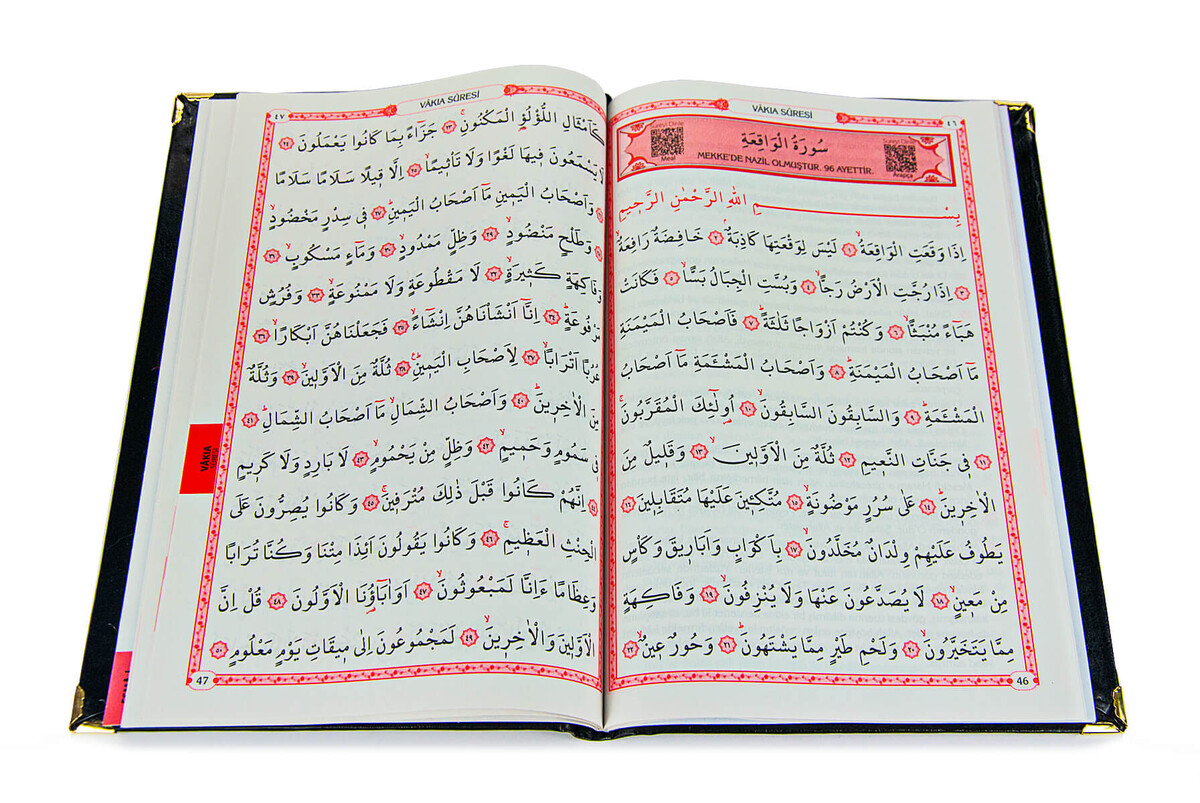 VÂKIA SÛRESİ
٤٦
Sureyi Dinle
سُورَةُ الْوَاقِعَةِ
Sureyi Dinle
MEKKE'DE NAZİL OLMUŞTUR. 96 AYETTİR.
Meal
Arapça
بِسْــــــمِ اللهِ الرَّحْمٰنِ الرَّحٖيمِ
اِذَا وَقَعَتِ الْوَاقِعَةُۙ ﴿١﴾ لَيْسَ لِوَقْعَتِهَا كَاذِبَةٌۢ ﴿٢﴾ خَافِضَةٌ رَافِعَةٌۙ
﴿٣﴾ اِذَا رُجَّتِ الْاَرْضُ رَجًّاۙ ﴿٤﴾ وَبُسَّتِ الْجِبَالُ بَسًّاۙ ﴿٥﴾ فَكَانَتْ
هَبَٓاءً مُنْبَثًّاۙ ﴿٦﴾ وَكُنْتُمْ اَزْوَاجًا ثَلٰثَةًؕ ﴿٧﴾ فَاَصْحَابُ الْمَيْمَنَةِ
مَٓا اَصْحَابُ الْمَيْمَنَةِؕ ﴿٨﴾ وَاَصْحَابُ الْمَشْـَٔمَةِ مَٓا اَصْحَابُ
الْمَشْـَٔمَةِؕ ﴿٩﴾ وَالسَّابِقُونَ السَّابِقُونَۙ ﴿١٠﴾ اُو۬لٰٓئِكَ الْمُقَرَّبُونَۚ
﴿١١﴾ فٖي جَنَّاتِ النَّعٖيمِ ﴿١٢﴾ ثُلَّةٌ مِنَ الْاَوَّلٖينَۙ ﴿١٣﴾ وَقَلٖيلٌ مِنَ
الْاٰخِرٖينَؕ ﴿١٤﴾ عَلٰى سُرُرٍ مَوْضُونَةٍۙ ﴿١٥﴾ مُتَّكِـٖٔينَ عَلَيْهَا مُتَقَابِلٖينَ ﴿١٦﴾
يَطُوفُ عَلَيْهِمْ وِلْدَانٌ مُخَلَّدُونَۙ ﴿١٧﴾ بِاَكْوَابٍ وَاَبَارٖيقَ وَكَاْسٍ
مِنْ مَعٖينٍۙ ﴿١٨﴾ لَا يُصَدَّعُونَ عَنْهَا وَلَا يُنْزِفُونَۙ ﴿١٩﴾ وَفَاكِهَةٍ
مِمَّا يَتَخَيَّرُونَۙ ﴿٢٠﴾ وَلَحْمِ طَيْرٍ مِمَّا يَشْتَهُونَؕ ﴿٢١﴾ وَحُورٌ عٖينٌۙ ﴿٢٢﴾
46
VÂKIA SÛRESİ
٤٧
كَاَمْثَالِ اللُّؤْلُؤِ الْمَكْنُونِۚ ﴿٢٣﴾ جَزَٓاءً بِمَا كَانُوا يَعْمَلُونَ ﴿٢٤﴾
لَا يَسْمَعُونَ فٖيهَا لَغْوًا وَلَا تَاْثٖيمًاۙ ﴿٢٥﴾ اِلَّا قٖيلًا سَلَامًا سَلَامًا
وَاَصْحَابُ الْيَمٖينِ مَٓا اَصْحَابُ الْيَمٖينِؕ ﴿٢٧﴾ فٖي سِدْرٍ مَخْضُودٍۙ
وَطَلْحٍ مَنْضُودٍۙ ﴿٢٩﴾ وَظِلٍّ مَمْدُودٍۙ ﴿٣٠﴾ وَمَٓاءٍ مَسْكُوبٍۙ ﴿٣١﴾
وَفَاكِهَةٍ كَثٖيرَةٍۙ ﴿٣٢﴾ لَا مَقْطُوعَةٍ وَلَا مَمْنُوعَةٍۙ ﴿٣٣﴾ وَفُرُشٍ
مَرْفُوعَةٍؕ ﴿٣٤﴾ اِنَّٓا اَنْشَاْنَاهُنَّ اِنْشَٓاءًۙ ﴿٣٥﴾ فَجَعَلْنَاهُنَّ اَبْكَارًاۙ ﴿٣٦﴾
عُرُبًا اَتْرَابًاۙ ﴿٣٧﴾ لِاَصْحَابِ الْيَمٖينِؕ ﴿٣٨﴾ ثُلَّةٌ مِنَ الْاَوَّلٖينَۙ ﴿٣٩﴾ وَثُلَّةٌ
مِنَ الْاٰخِرٖينَؕ ﴿٤٠﴾ وَاَصْحَابُ الشِّمَالِۙ مَٓا اَصْحَابُ الشِّمَالِؕ ﴿٤١﴾
فٖي سَمُومٍ وَحَمٖيمٍۙ ﴿٤٢﴾ وَظِلٍّ مِنْ يَحْمُومٍۙ ﴿٤٣﴾ لَا بَارِدٍ وَلَا كَرٖيمٍ
اِنَّهُمْ كَانُوا قَبْلَ ذٰلِكَ مُتْرَفٖينَۚ ﴿٤٥﴾ وَكَانُوا يُصِرُّونَ عَلَى
الْحِنْثِ الْعَظٖيمِۚ ﴿٤٦﴾ وَكَانُوا يَقُولُونَ اَئِذَا مِتْنَا وَكُنَّا تُرَابًا
وَعِظَامًا ءَاِنَّا لَمَبْعُوثُونَۙ ﴿٤٧﴾ اَوَاٰبَٓاؤُ۬نَا الْاَوَّلُونَ ﴿٤٨﴾ قُلْ اِنَّ
الْاَوَّلٖينَ وَالْاٰخِرٖينَۙ ﴿٤٩﴾ لَمَجْمُوعُونَ اِلٰى مٖيقَاتِ يَوْمٍ مَعْلُومٍ ﴿٥٠﴾
47
VÂKIA
SÛRESİ